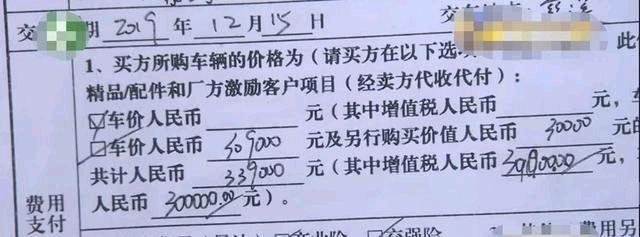 交 期 2019 年 12 月 15 日 交
1、买方所购车辆的价格为（请买方在以下选项 此
精品/配件和厂方激励客户项目（经卖方代收代付）：
☑车价人民币 元（其中增值税人民币 元，车
□车价人民币 309000 元及另行购买价值人民币 30000 元的
共计人民币 339000 元（其中增值税人民币 元，
人民币 300000.00 元）。
费用
支付
业险 交强险 费用另